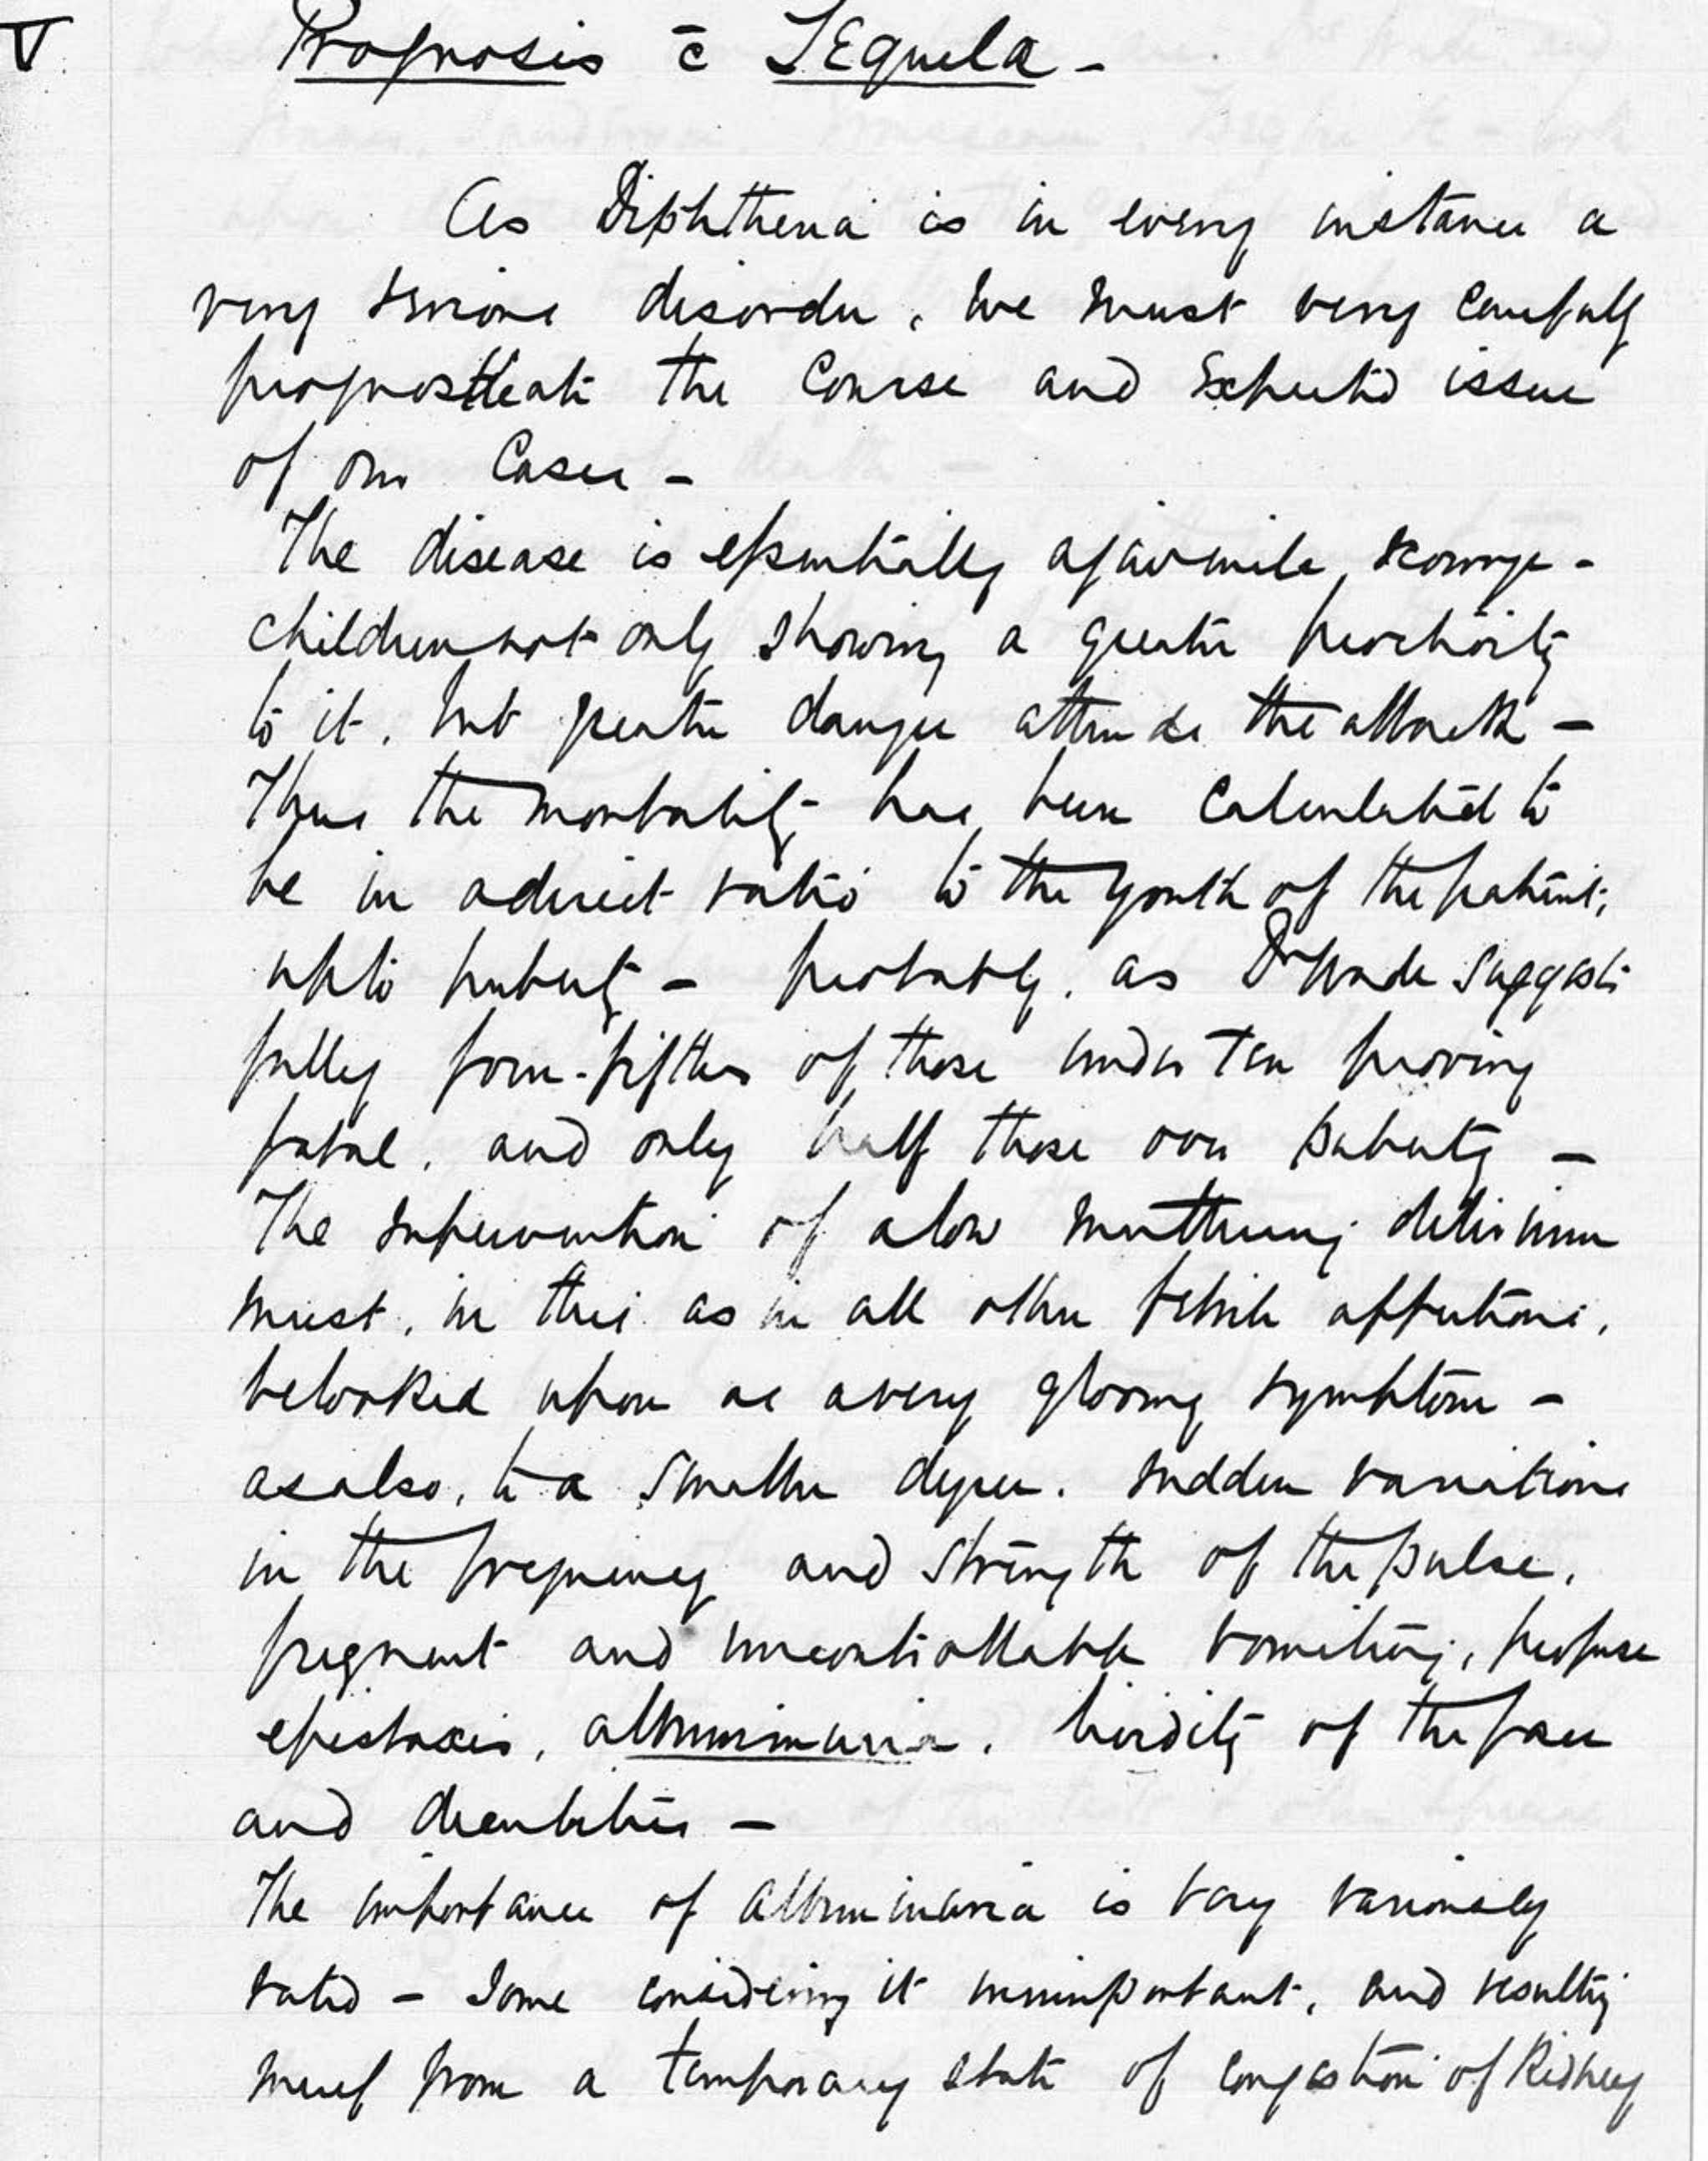 V
Prognosis c̄ Sequela -
As Diphtheria is in every instance a
very serious disorder, we must very carefully
prognosticate the Course and Expected issue
of our Cases -
The disease is essentially a juvenile scourge -
children not only showing a greater proclivity
to it, but greater danger attends the attack -
Thus the mortality has been calculated to
be in a direct ratio to the youth of the patient,
up to puberty - probably, as Dr Wade suggests
fully four-fifths of those under ten proving
fatal, and only half those over puberty -
The supervention of a low muttering delirium
must, in this as in all other febrile affections,
be looked upon as a very gloomy symptom -
as also, to a smaller degree, sudden variations
in the frequency and strength of the pulse,
frequent and uncontrollable vomiting, profuse
epistaxis, albuminuria, lividity of the face
and
The importance of albuminuria is very variously
rated - Some considering it unimportant, and resulting
merely from a temporary state of congestion of Kidney